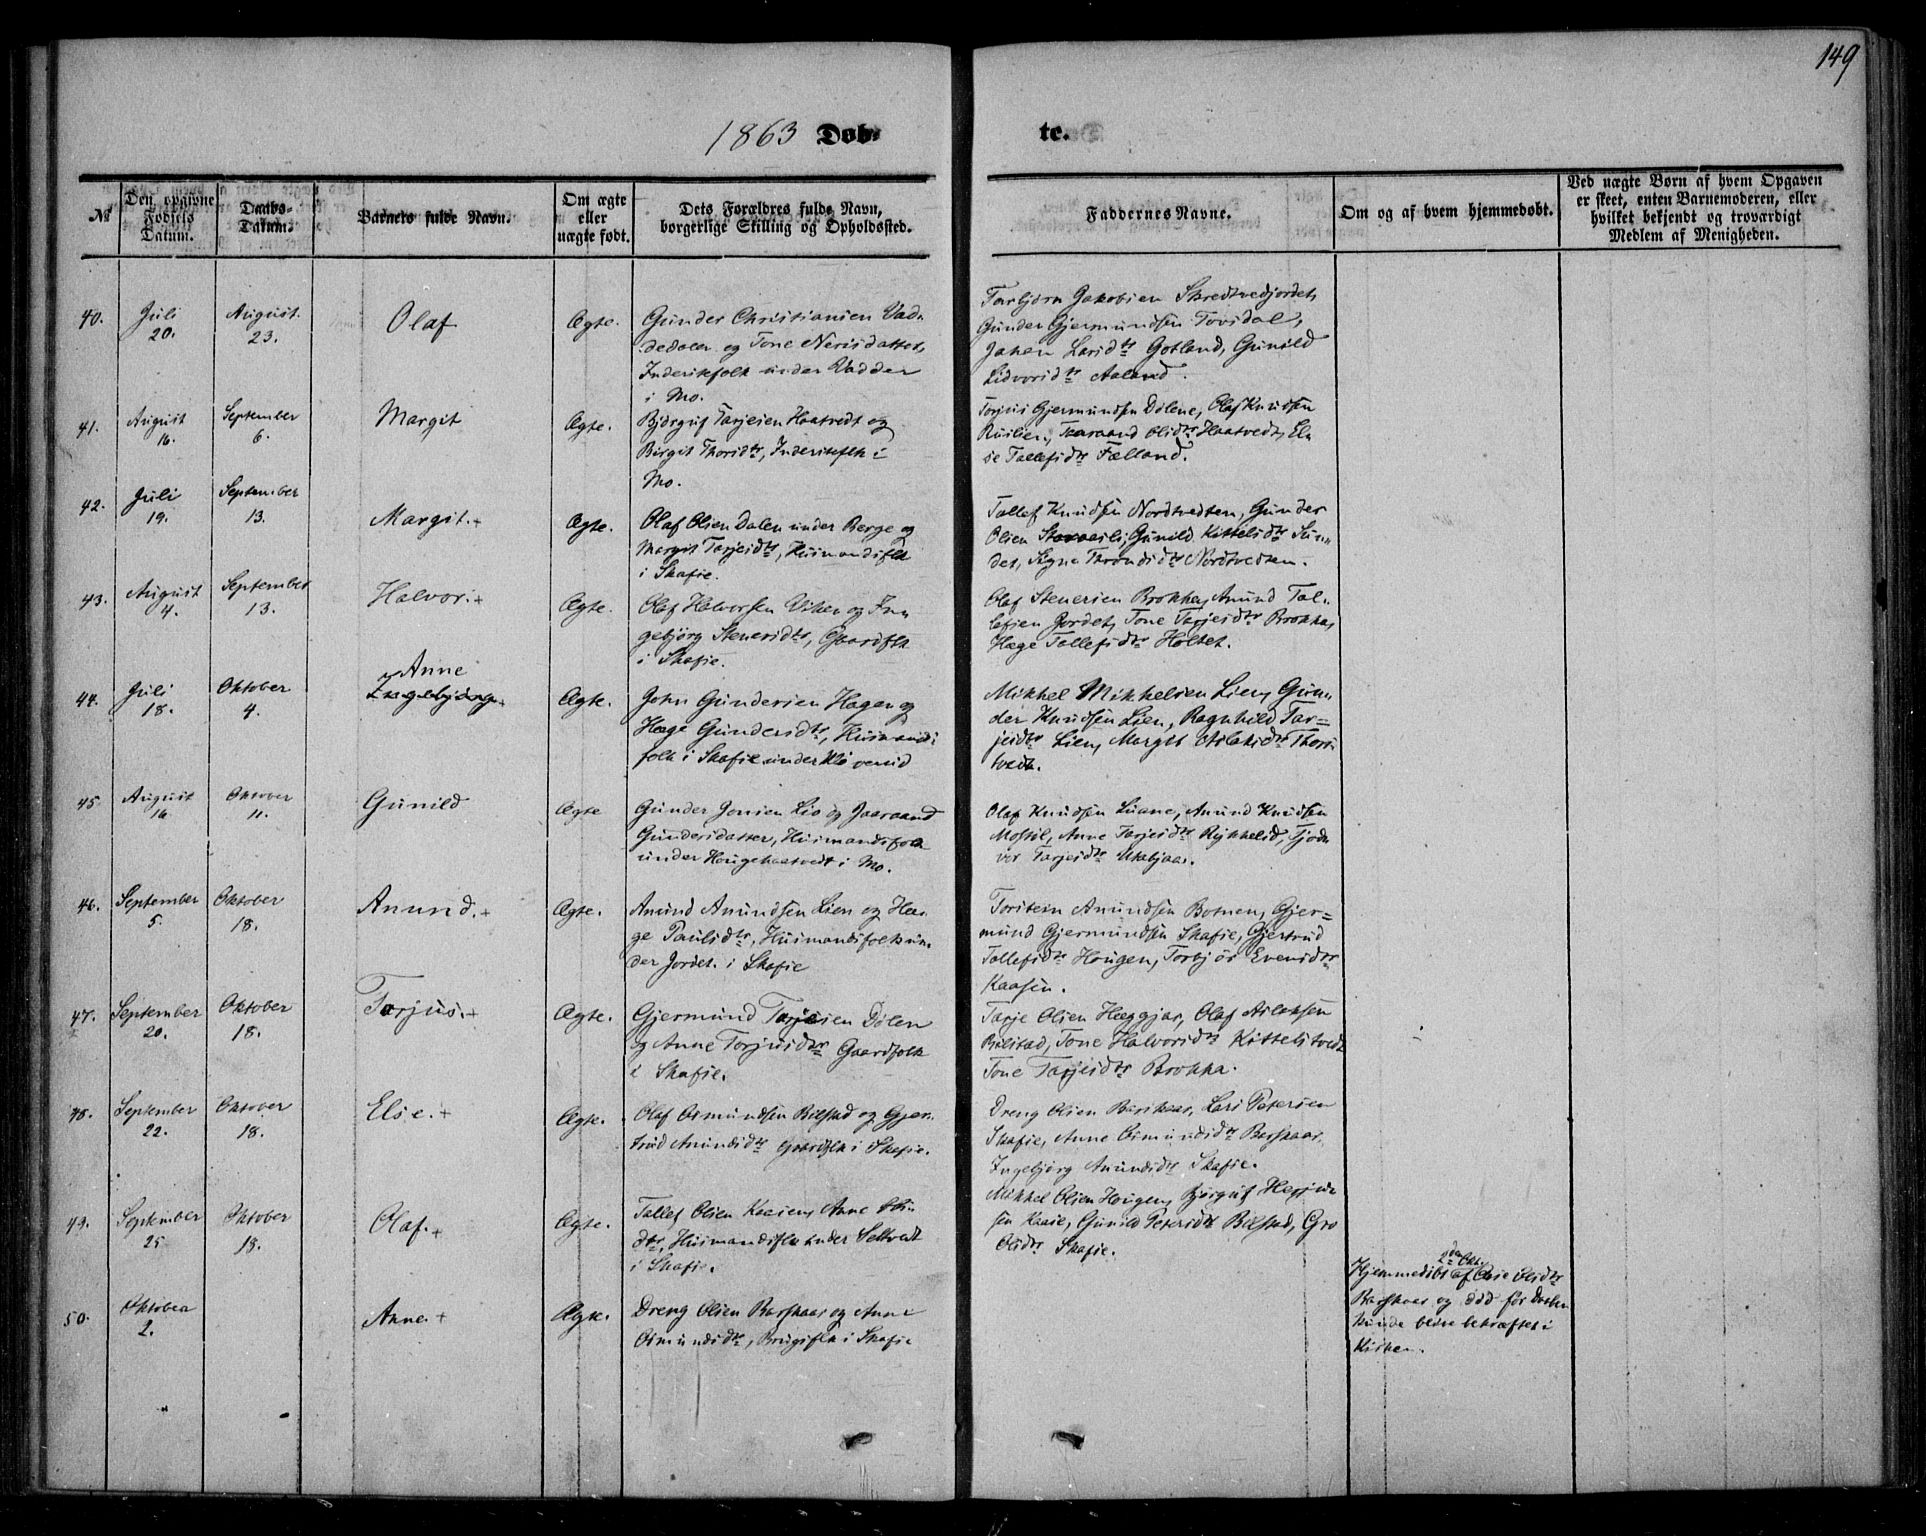 149
1863 Døb-
te.
№
Den opgivne Fødsels Datum.
Daabs-Datum.
Barnets fulde Navn.
Om ægte eller uægte født.
Dets Forældres fulde Navn, borgerlige Stilling og Opholdssted.
Faddernes Navne.
Om og af hvem hjemmedøbt.
Ved uægte Børn af hvem Opgaven er skeet, enten Barnemoderen, eller hvilket bekjendt og troværdigt Medlem af Menigheden.
40. Juli 20. August 23. Olaf Ægte.
Gunder Christiansen Vad-
dedalen og Tone Nerisdatter,
Inderstfolk under Vadder
i Mo.
Torbjørn Jakobsen Skredtvedjordet,
Gunder Gjermundsen Tovsdal,
Johen Larsdtr Gotland, Gunild
Lidvorsdtr Aaland.
41. August 16. September 6. Margit Ægte.
Bjørguf Tarjeisen Haatvedt og
Birgit Thorsdtr, Inderstflk i
Mo.
Torjus Gjermundsen Dølene, Olaf Knudsen
Olsdtr Haatvedt, El-
se Tallefsdtr Fælland.
42. Juli 19. September 13. Margit.+ Ægte.
Olaf Olsen Dalen under Berge og
Margit Tarjeisdtr, Husmandsflk
i Skafse.
Tallef Knudsen Nordtvedten, Gunder
Olsen Gunild Kittelsdtr Sun-
det, Signe Throndsdtr Nordtvedten.
43. August 4. September 13. Halvor.+ Ægte.
Olaf Halvorsen Viken og In-
gebjørg Stenersdtr, Gaardflk
i Skafse.
Olaf Stenersen Brokka, Anund Tal-
lefsen Jordet, Tone Tarjeisdtr Brokka,
Hæge Tallefsdtr Holtet.
44. Juli 18. Oktober 4. Anne Ingebjørg+ Ægte.
John Gundersen Hagen og
Hæge Gundersdtr, Husmands
folk i Skafse under Kløverud
Mikkel Mikkelsen Lien, Gun-
der Knudsen Lien, Ragnhild Tar=
jeisdtr Lien, Margit Aslaksdtr Thors
tvedt.
45. August 16. Oktober 11. Gunild Ægte
Gunder Jonsen Lio og Jaaraand
Gundersdatter, Husmandsfolk
under Hougehaatvedt i Mo.
Olaf Knudsen Luane, Anund Knudsen
Mostil, Anne Tarjeisdtr Rykkelid, Tjod-
vor Tarjeisdtr
46. September 5. Oktober 18. Anund.+ Ægte.
Anund Anundsen Lien og Hæ-
ge Paulsdtr, Husmandsfolk un-
der Jordet i Skafse
Torstein Anundsen Botnen, Gjer=
mund Gjermundsen Skafse, Gjertrud
Tallefsdtr Hougen, Torbjør Evensdtr
Kaasen.
47. September 20. Oktober 18. Torjus.+ Ægte.
Gjermund Tarjeisen Dølen
og Anne Torjusdtr Gaardfolk
i Skafse.
Tarje Olsen Hæggjar, Olaf Aslaksen
Bilstad, Tone Halvorsdtr Kittelstvedt
Tone Tarjeisdtr Brokka.
48. September 22. Oktober 18. Else.+ Ægte.
Olaf Osmundsen Bilstad og Gjer-
trud Anundsdtr Gaardflk i Skafse.
Dreng Olsen Barskaar, Lars Petersen
Skafse, Anne Osmundsdtr Barskaar,
Ingebjørg Anundsdtr Skafse.
49. September 25 Oktober 18. Olaf.+ Ægte.
Tallef Olsen Kaasen, Anne Ols-
dtr, Husmandsflk under Seltvedt
i Skafse.
Mikkel Olsen Hougen, Bjørguf
sen Kaase, Gunild Petersdtr Bilstad, Gro
Olsdtr Skafse.
50. Oktober 2. Anne.+ Ægte.
Dreng Olsen Barskaar og Anne
Osmundsdtr, Brugsflk i Skafse
2den Okt.
Hjemmedøbt af Olsdtr
Barskaar og død før Daaben
kunde blive bekræftet i
Kirken.